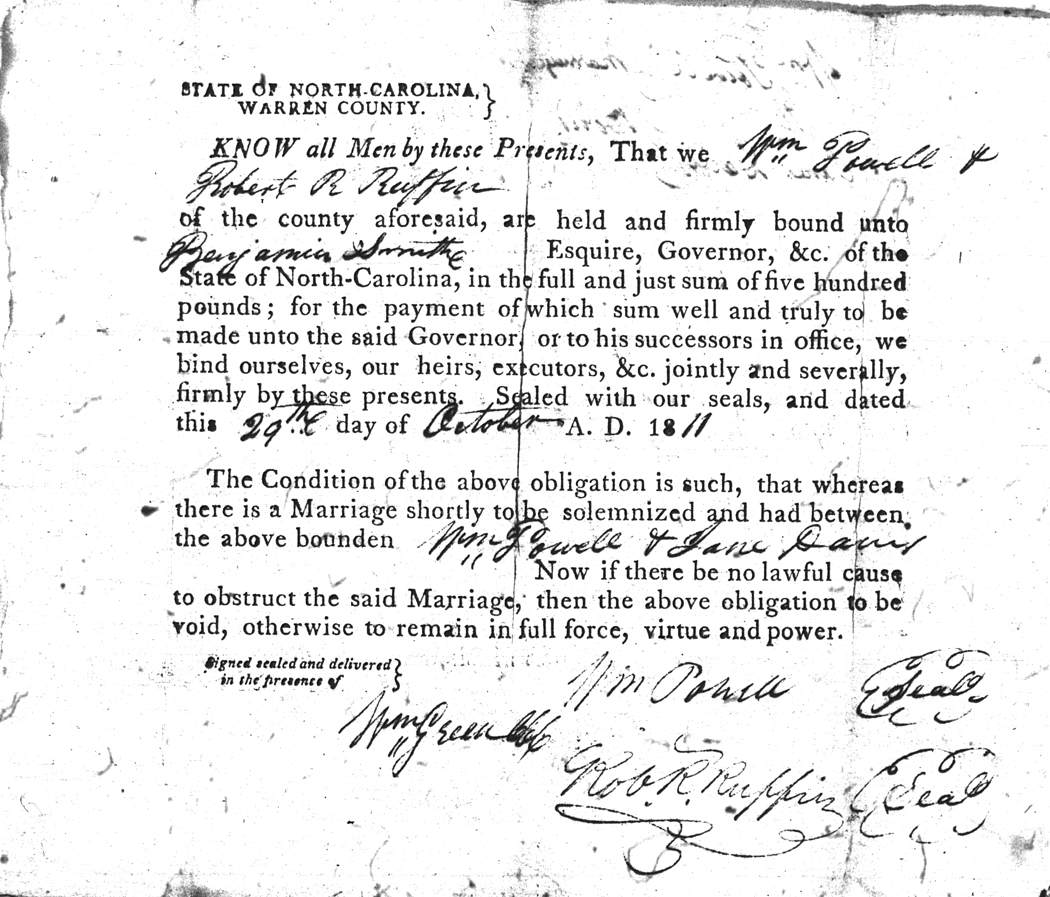 STATE OF NORTH-CAROLINA,
WARREN COUNTY.
KNOW all Men by these Presents, That we Wm Powell &
Robert R Ruffin
of the county aforesaid, are held and firmly bound unto
Benjamin Smith Esquire, Governor, &c. of the
State of North-Carolina, in the full and just sum of five hundred
pounds; for the payment of which sum well and truly to be
made unto the said Governor, or to his successors in office, we
bind ourselves, our heirs, executors, &c. jointly and severally,
firmly by these presents. Sealed with our seals, and dated
this 29th day of October A. D. 1811
The Condition of the above obligation is such, that whereas
there is a Marriage shortly to be solemnized and had between
the above bounden Wm Powell & Jane Davis
Now if there be no lawful cause
to obstruct the said Marriage, then the above obligation to be
void, otherwise to remain in full force, virtue and power.
Signed sealed and delivered
in the presence of
Wm Powell Seal
Wm Green
Rob. R. Ruffin Seal